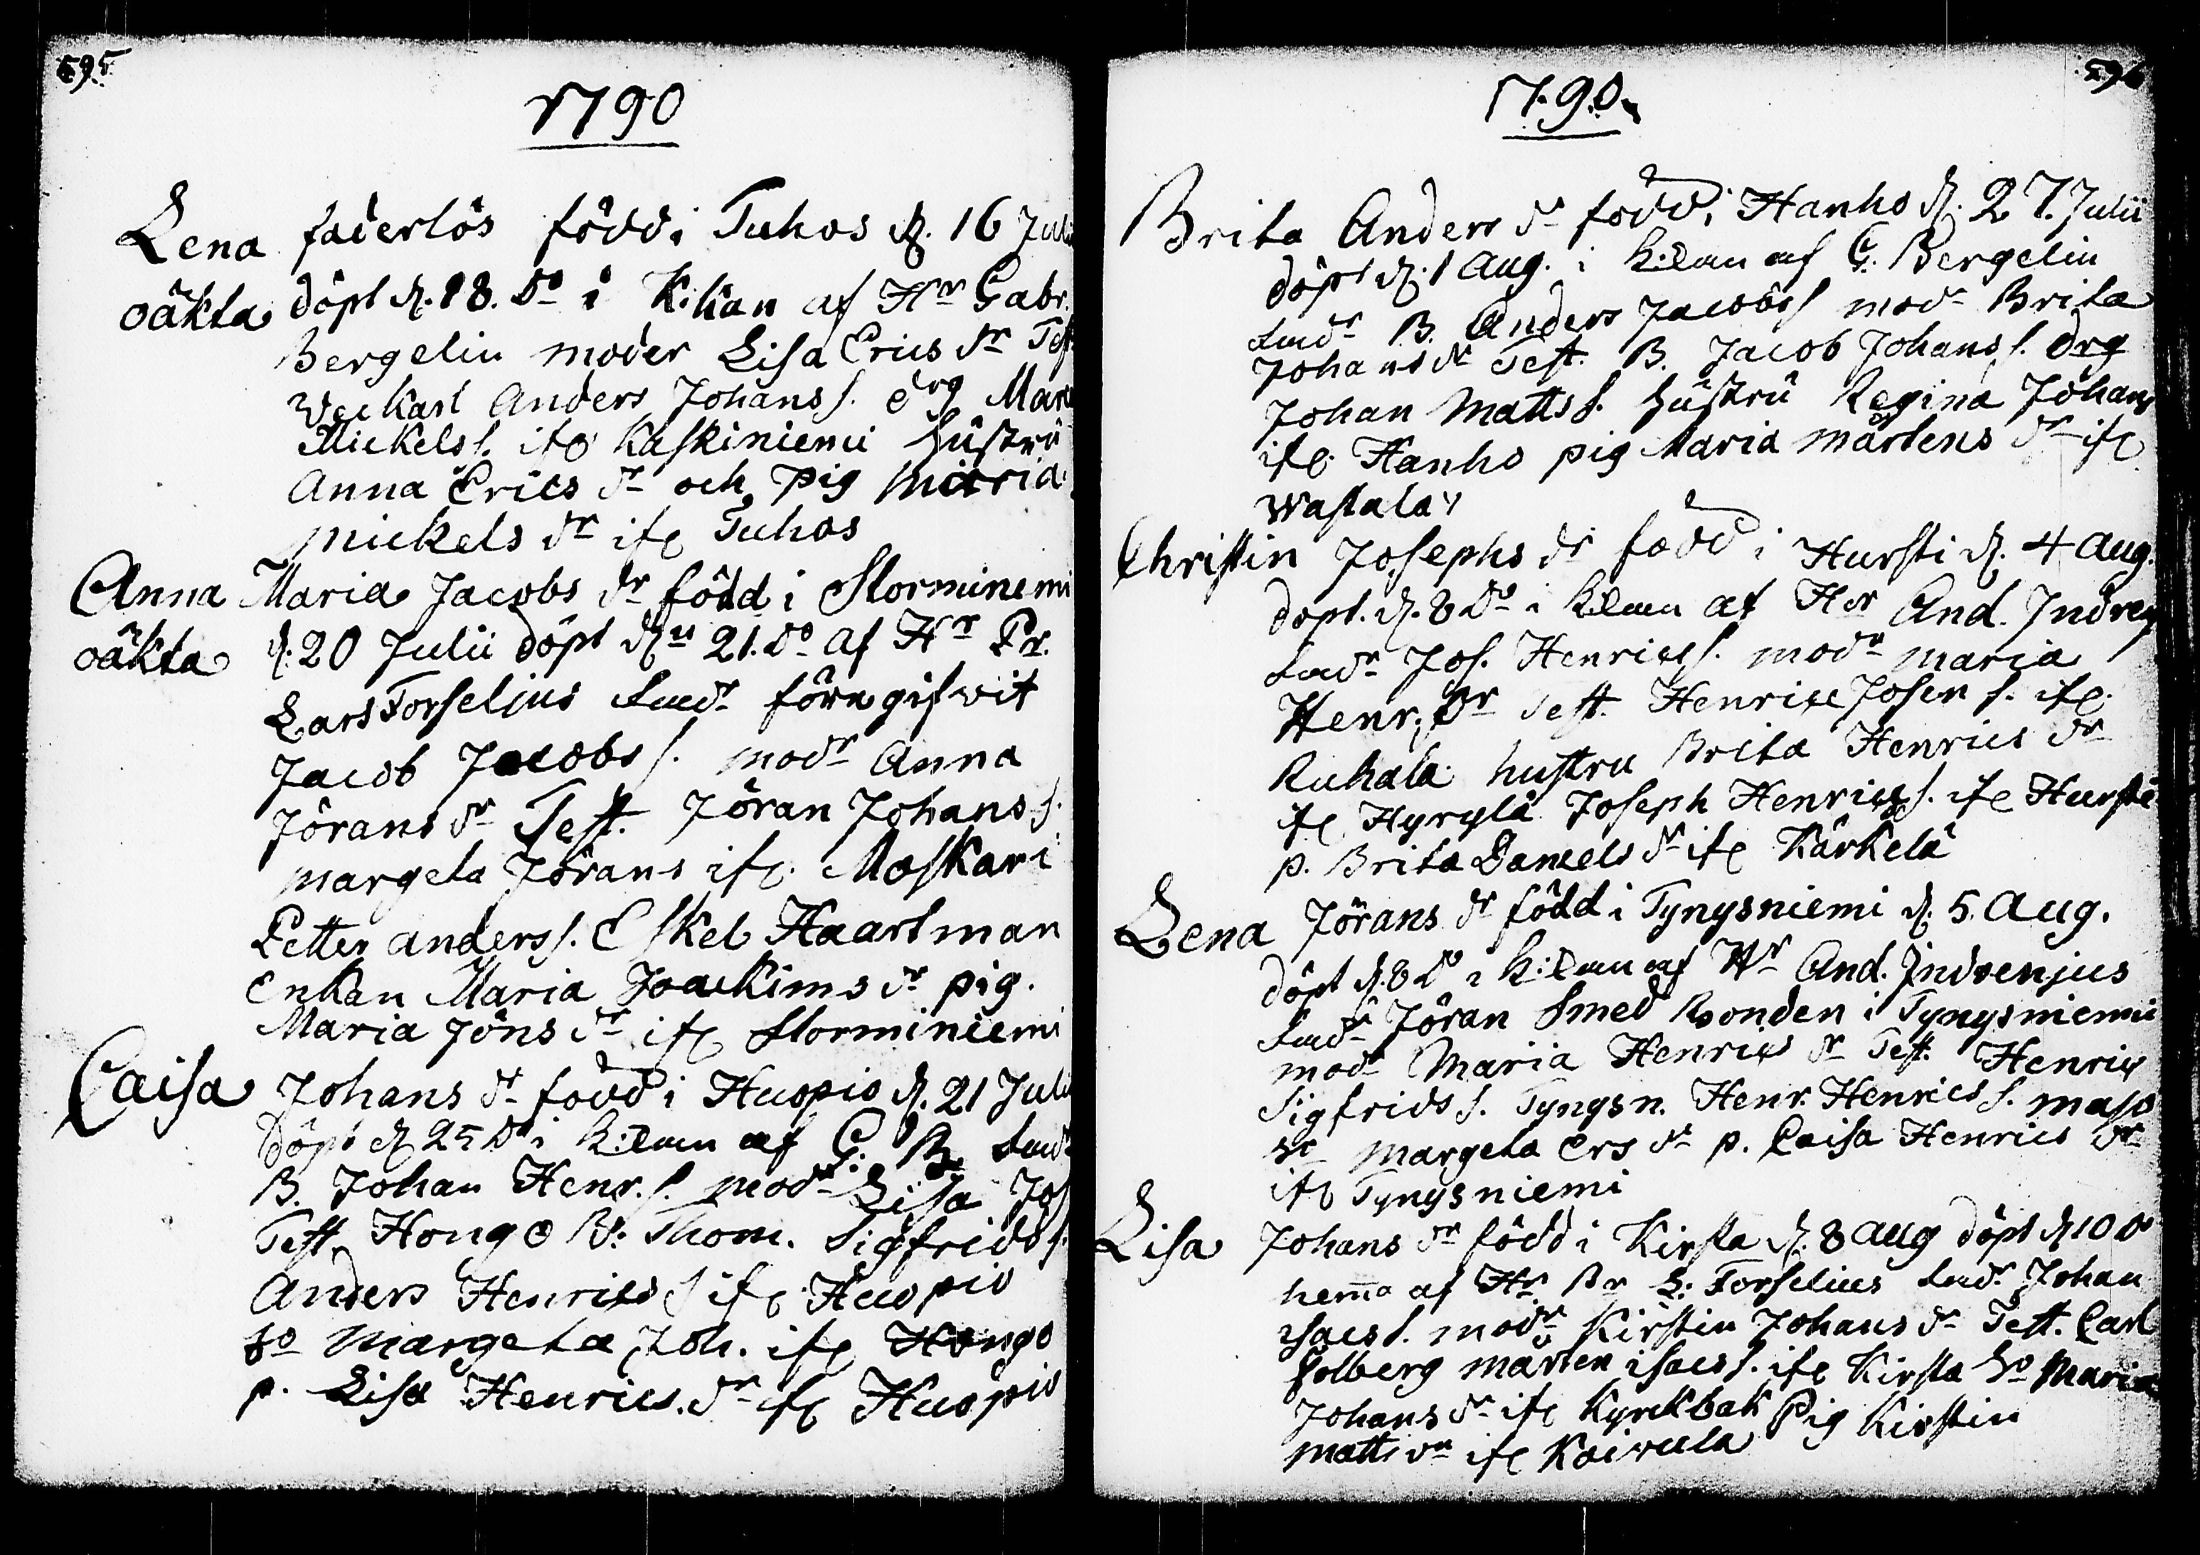 595
1790
Lena faderlös född i Tuhos d. 16 Juli
oäkta döpt d. 18. do i K:kan af Hr Gabr.
Bergelin moder Lisa Erics dr Test
Anders Johans s. drg Mar
Mickels s. ifr Kaskiniemi hustru
Anna Erics dr och pig Maria
Mickels dr ifr Tuhos
Anna Maria Jacobs dr född i Storminiemi
oäkta d. 20 Julii döpt dn 21. do af Hr Pr.
Lars Forseljus fadr
Jacob Jacobs s. modr Anna
Jörans dr Test. Jöran Johans s.
Margeta Jörans ifr. Moskari
Petter Anders s. Eskel Haartman
Enkan Maria Joackims dr pig.
Maria Jöns dr ifr Storminiemi
Caisa Johans dr född i Huopio d. 21 Juli
döpt d 25 do i k:kan af G: B. fadr
B. Johan Henr. s. modr Lisa Jos
Test. Hongo B: Thom. Sigfrids s.
Anders Henrics s ifr. Huopio
ho Margeta Joh. ifr Hongo
p. Lisa Henrics. dr ifr Huopio
596
1790
Brita Anders dr född i Hanho d. 27. Julii
döpt d. 1 Aug. i k:kan af G. Bergelin
fadr B. Anders Jacobs s modr Brita
Johans dr Test. B. Jacob Johans s. drg
Johan Matts s. hustru Regina Johans
ifr. Hanho pig Maria Mårtens dr ifr
Wastala
Christin Josephs dr född i Hursti d. 4 Aug.
döpt. d. 8 do i k:kan af Hr And. Indren
fadr Jos. Henrics s. modr Maria
Henr. dr Test. Henric Josep s. ifr.
Ruhala hustru Brita Henrics dr
ifr Hyrylä Joseph Henrics s. ifr Hursti
p. Brita Daniels dr ifr Kärkelä
Lena Jörans dr född i Tynysniemi d. 5. Aug.
döpt d. 8 do i k:kan af Hr And. Indrenjus
fadr Jöran Smed Bonden i Tynysniemi
modr Maria Henrics dr Test. Henric
Sigfrids s. Tynysn. Henr. Henrics s. Maso
ho Margeta Ers dr p. Caisa Henrics dr
ifr Tynysniemi
Lisa Johans dr född i Kirsta d. 8 Aug döpt d 10 do
hem̄a af Hr Pr L: Forselius fadr Johan
Isacs s. modr Kirstin Johans dr Test. Carl
Solberg Mårten Isacs s. ifr Kirsta ho Maria
Johans dr ifr Kyrckbak Pig Kirstin
Matts dr ifr Koivula